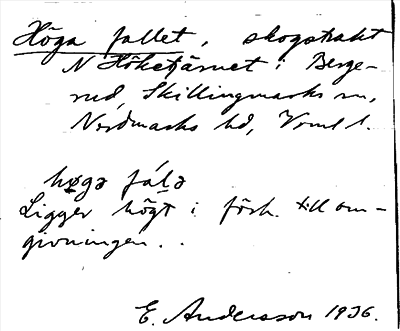 Höga fallet, skogstrakt
N Höketjärnet i Berge-
rud, Skillingmarks sn,
Nordmarks hd, Vrml l.
høgə fálə
Ligger högt i förh. till om-
givningen..
E. Andersson 1936.